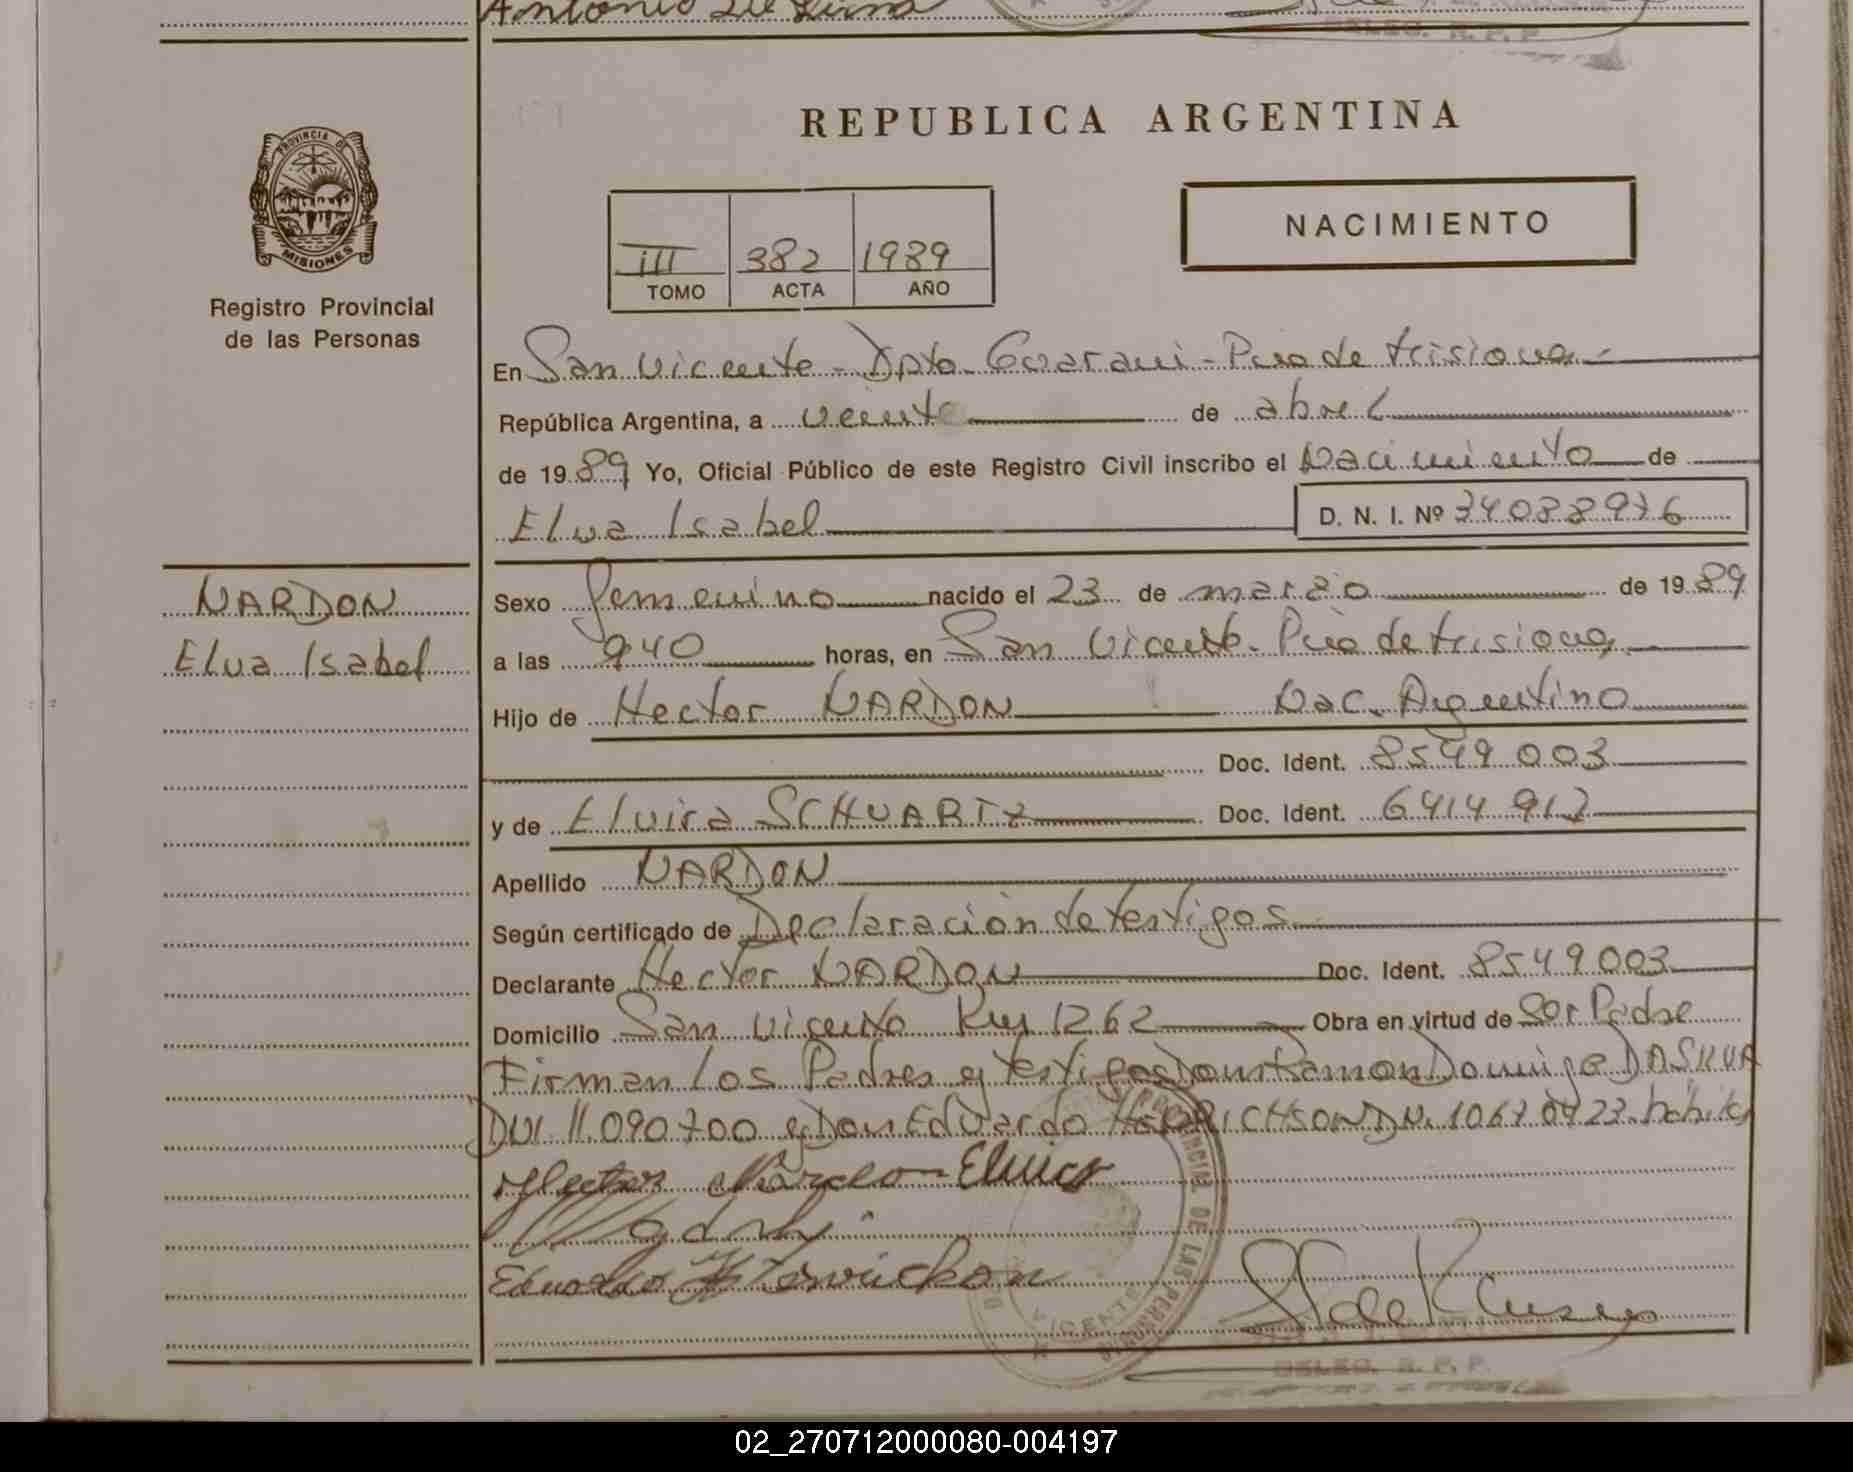 Antonio De Lima
DELEG. R. P. P.
REPUBLICA ARGENTINA
PROVINCIA DE
MISIONES
Registro Provincial
de las Personas
NACIMIENTO
III 382 1989
TOMO ACTA AÑO
En San Vicente - Dpto Guarani - Pcia de Misiones -
República Argentina, a veinte de abril
de 1989 Yo, Oficial Público de este Registro Civil inscribo el Nacimiento de
Elva Isabel D. N. I. Nº 34088976
NARDON
Elva Isabel
Sexo femenino nacido el 23 de marzo de 1989
a las 940 horas, en San Vicente - Pcia de Misiones
Hijo de Hector NARDON Nac. Argentino
Doc. Ident. 8549 003
y de Elvira SCHUARTZ Doc. Ident. 6414 917
Apellido NARDON
Según certificado de Declaración de testigos
Declarante Hector NARDON Doc. Ident. 8549003
Domicilio San Vicente Km 1262 Obra en virtud de Ser Padre
Firman los Padres y testigos Don Ramon Domingo DA SILVA
DNI 11.090700 y Don Eduardo DN. habiles
Hector Nardo - Elvira
Eduardo
PROVINCIAL DE LAS PERSONAS
VICENTE
DELEG. R. P. P.
02_270712000080-004197